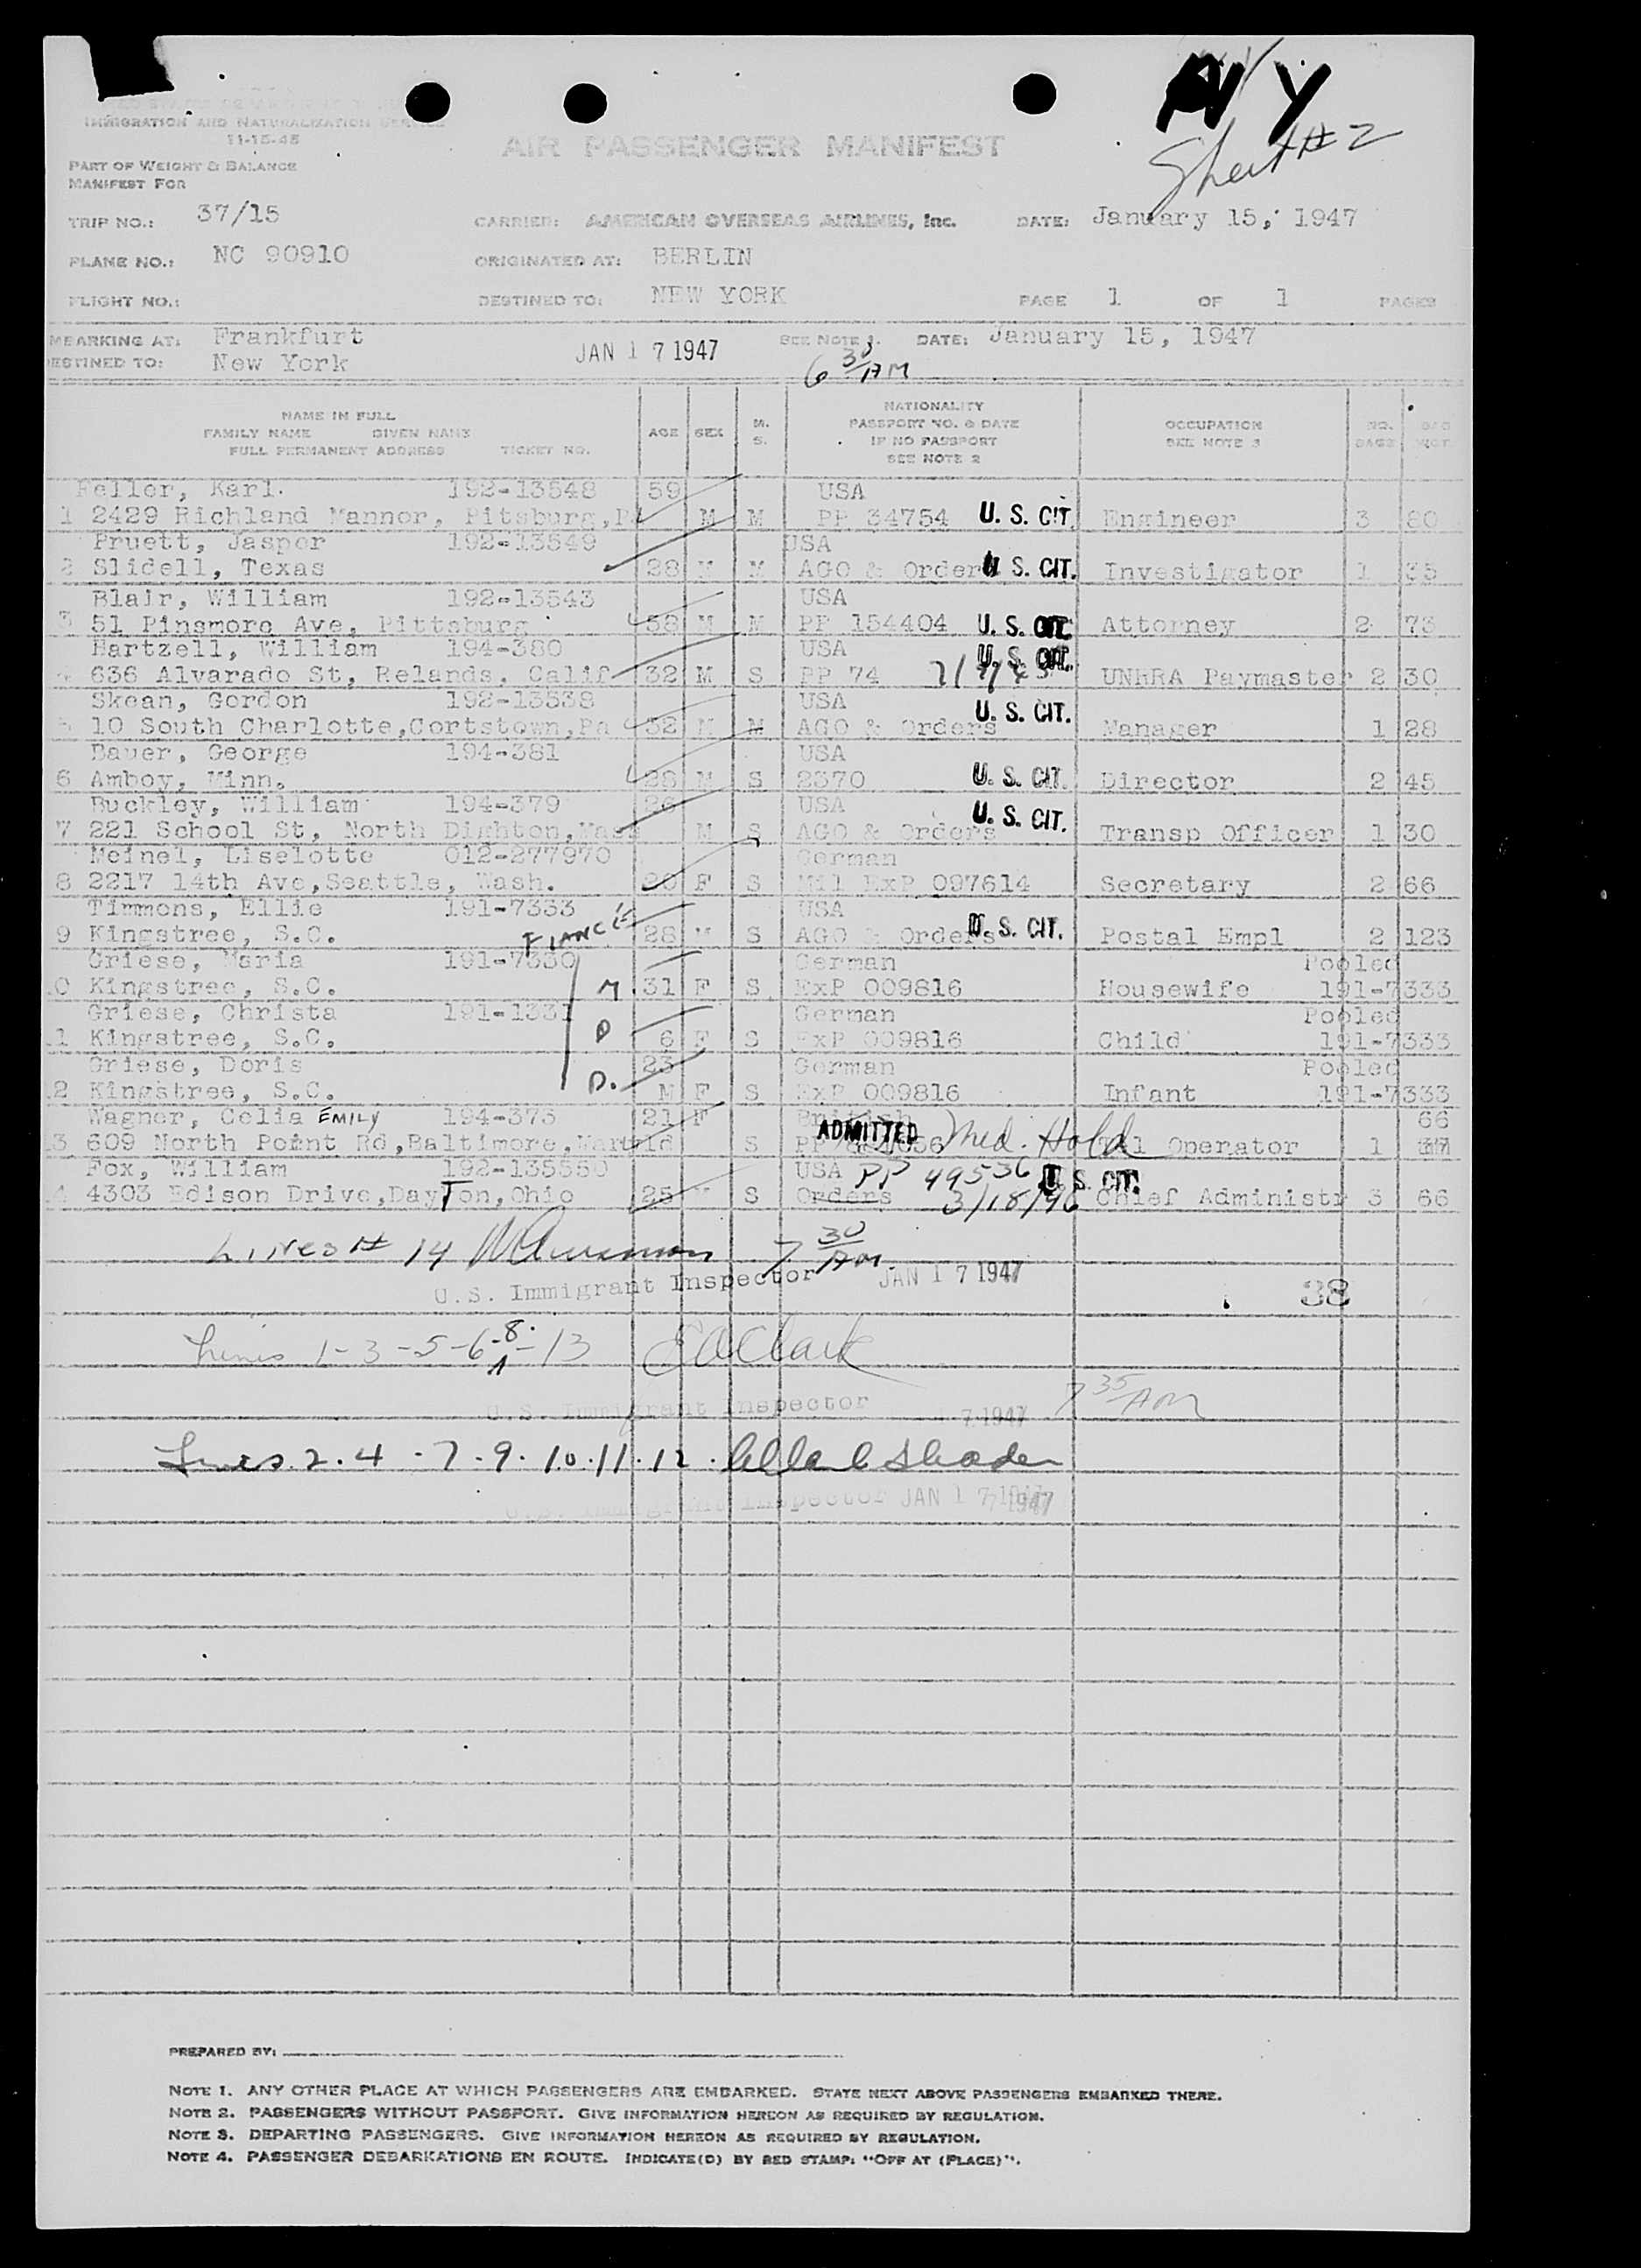 NY
Sheet # 2
IMMIGRATION AND NATURALIZATION SERVICE
11-15-45
AIR PASSENGER MANIFEST
PART OF WEIGHT & BALANCE
MANIFEST FOR
TRIP NO.: 37/15 CARRIER: AMERICAN OVERSEAS AIRLINES, Inc. DATE: January 15, 1947
PLANE NO.: NC 90910 ORIGINATED AT: BERLIN
FLIGHT NO.: DESTINED TO: NEW YORK PAGE 1 OF 1 PAGES
MBARKING AT: Frankfurt SEE NOTE 1. DATE: January 15, 1947
ESTINED TO: New York JAN 17 1947 6 30 AM
NAME IN FULL
FAMILY NAME GIVEN NAME
FULL PERMANENT ADDRESS TICKET NO. AGE SEX M. S. NATIONALITY PASSPORT NO. & DATE IF NO PASSPORT SEE NOTE 2 OCCUPATION SEE NOTE 3 NO. BAGS BAG WGT.
Feller, Karl. 192-13548 59 USA
1 2429 Richland Mannor, Pitsburg, Pa M M PP 34754 U. S. CIT. Engineer 3 80
Pruett, Jasper 192-13549 USA
2 Slidell, Texas 28 M M AGO & Orders U. S. CIT. Investigator 1 35
Blair, William 192-13543 USA
3 51 Pinsmore Ave, Pittsburg 58 M M PP 154404 U. S. CIT. Attorney 2 73
Hartzell, William 194-380 USA U. S. CIT.
4 636 Alvarado St, Relands, Calif 32 M S PP 74 UNRRA Paymaster 2 30
Skean, Gordon 192-13538 USA
5 10 South Charlotte, Cortstown, Pa 32 M M AGO & Orders U. S. CIT. Manager 1 28
Bauer, George 194-381 USA
6 Amboy, Minn. 28 M S 2370 U. S. CIT. Director 2 45
Buckley, William 194-379 26 USA
7 221 School St, North Dighton, Mass M S AGO & Orders U. S. CIT. Transp Officer 1 30
Meinel, Liselotte 012-277970 German
8 2217 14th Ave, Seattle, Wash. 20 F S Mil ExP 097614 Secretary 2 66
Timmons, Ellie 191-7333 USA
9 Kingstree, S.C. FIANCÉ 28 M S AGO & Orders U. S. CIT. Postal Empl 2 123
Griese, Maria 191-7330 German Pooled
10 Kingstree, S.C. M. 31 F S ExP 009816 Housewife 191-7333
Griese, Christa 191-1331 German Pooled
11 Kingstree, S.C. D 6 F S ExP 009816 Child 191-7333
Griese, Doris 23 German Pooled
12 Kingstree, S.C. D. M F S ExP 009816 Infant 191-7333
Wagner, Celia EMILY 194-375 21 F British 66
13 609 North Point Rd, Baltimore, S PP ADMITTED Med. Hold Operator 1 37
Fox, William 192-135550 USA PP 49536
14 4303 Edison Drive, Dayton, Ohio 25 M S Orders 3/18/46 U. S. CIT. Chief Administr 3 66
Lines # 14 7 30 AM
U.S. Immigrant Inspector JAN 17 1947
38
Lines 1-3-5-6-8-13 E O Clark
U.S. Immigrant Inspector 7 1947 7 35 AM
Lines. 2. 4 . 7. 9. 10. 11. 12.
U.S. Immigrant Inspector JAN 17 1947
PREPARED BY:
NOTE 1. ANY OTHER PLACE AT WHICH PASSENGERS ARE EMBARKED. STATE NEXT ABOVE PASSENGERS EMBARKED THERE.
NOTE 2. PASSENGERS WITHOUT PASSPORT. GIVE INFORMATION HEREON AS REQUIRED BY REGULATION.
NOTE 3. DEPARTING PASSENGERS. GIVE INFORMATION HEREON AS REQUIRED BY REGULATION.
NOTE 4. PASSENGER DEBARKATIONS EN ROUTE. INDICATE(D) BY RED STAMP: "OFF AT (PLACE)".